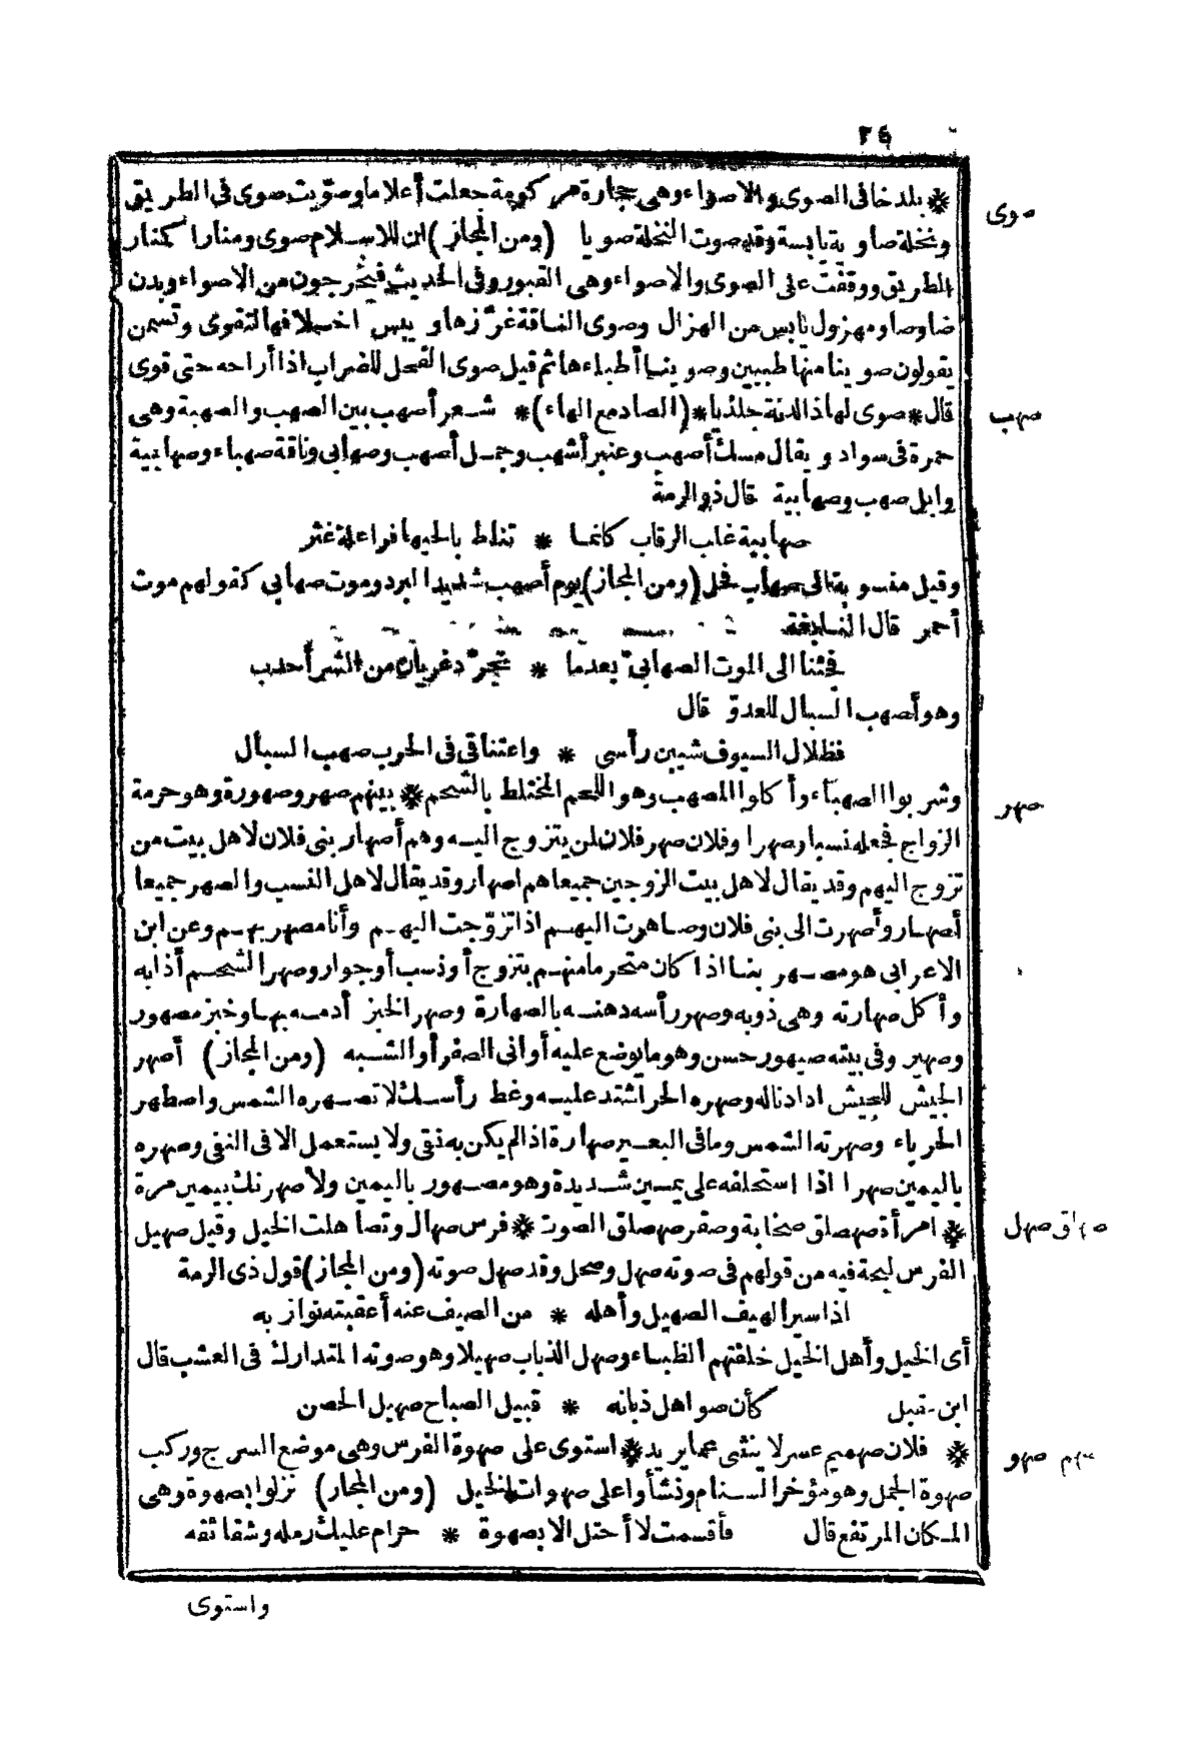 ٢٤
* بلد خافى الصوى والاصواء وهى حجارة مركومة جعلت أعلاما وصوّيت صوى فى الطريق
صوى
ونخلة صاوية يابسة وقد صوت النخلة صويا (ومن المجاز) ان للاسلام صوى ومنارا كمنار
الطريق ووقفت على الصوى والاصواء وهى القبور وفى الحديث فيخرجون من الاصواء وبدن
ضاو صاو مهزول يابس من الهزال وصوى الناقة غرّزها و يبس اخلافها لتقوى وتسمن
يقولون صوينا منها طبيين وصوينا أطباءها ثم قيل صوى الفحل للضراب اذا أراحه حتى قوى
قال * صوى لها ذا كدنة جلذيا * (الصاد مع الهاء) * شعر أصهب بين الصهب والصهبة وهى
صهب
حمرة فى سواد ويقال مسك أصهب وعنبر أشهب وجمل أصهب وصهابى وناقة صهباء وصهابية
وابل صهب وصهابية قال ذو الرمة
صهابية غلب الرقاب كانما * تناط بالحيها فراعلة غثر
وقيل منسوبة الى صهاب فحل (ومن المجاز) يوم أصهب شديد البرد وموت صهابى كقولهم موت
أحمر قال النابغة
فجئنا الى الموت الصهابىّ بعدما * تجرّد عريان من الشر أحدب
وهو أصهب السبال للعدوّ قال
فظلال السيوف شيبن رأسى * واعتناقى فى الحرب صهب السبال
وشربوا الصهباء وأكلوا المصهب وهو اللحم المختلط بالشحم * بينهم صهر وصهورة وهو حرمة
صهر
الزواج فجعله نسبا وصهرا وفلان صهر فلان لمن يتزوج اليه وهم أصهار بنى فلان لاهل بيت من
تزوج اليهم وقد يقال لاهل بيت الزوجين جميعا هم اصهار وقد يقال لاهل النسب والصهر جميعا
أصهار وأصهرت الى بنى فلان وصاهرت اليهم اذا تزوّجت اليهم وأنا مصهر بهم وعن ابن
الاعرابى هو مصهر بنا اذا كان متحرما منهم بتزوج أو نسب أو جوار وصهر الشحم أذابه
وأكل صهارته وهى ذوبه وصهر رأسه دهنه بالصهارة وصهر الخبز أدمه بها وخبز مصهور
وصهير وفى بيته صيهور حسن وهو ما يوضع عليه أوانى الصفر أو الشبه (ومن المجاز) أصهر
الجيش للجيش اذا دناله وصهره الحر اشتد عليه وغط رأسك لا تصهره الشمس واصطهر
الحرباء وصهرته الشمس وما فى البعير صهارة اذا لم يكن به نقى ولا يستعمل الا فى النفى وصهره
باليمين صهرا اذا استحلفه على يمين شديدة وهو مصهور باليمين ولا صهرنك بيمين مرة
* امرأة صهصلق صخابة وصقر صهصلق الصوت * فرس صهال وتصاهلت الخيل وقيل صهيل
صهلق صهل
الفرس لبحة فيه من قولهم فى صوته صهل وصحل وقد صهل صوته (ومن المجاز) قول ذى الرمة
اذا سير الهيف الصهيل وأهله * من الصيف عنه أعقبته نوازبه
أى الخيل وأهل الخيل خلفتهم الظباء وصهل الذباب صهيلا وهو صوته المتدارك فى العشب قال
ابن مقبل كأن صواهل ذبانه * قبيل الصباح صهيل الحصن
* فلان صهميم عسر لا ينثنى عما يريد * استوى على صهوة الفرس وهى موضع السرج وركب
صهم صهو
صهوة الجمل وهو مؤخر السنام ونشأوا على صهوات الخيل (ومن المجاز) نزلوا بصهوة وهى
المكان المرتفع قال فأقسمت لا أحتل الا بصهوة * حرام عليك رمله وشقائقه
واستوى